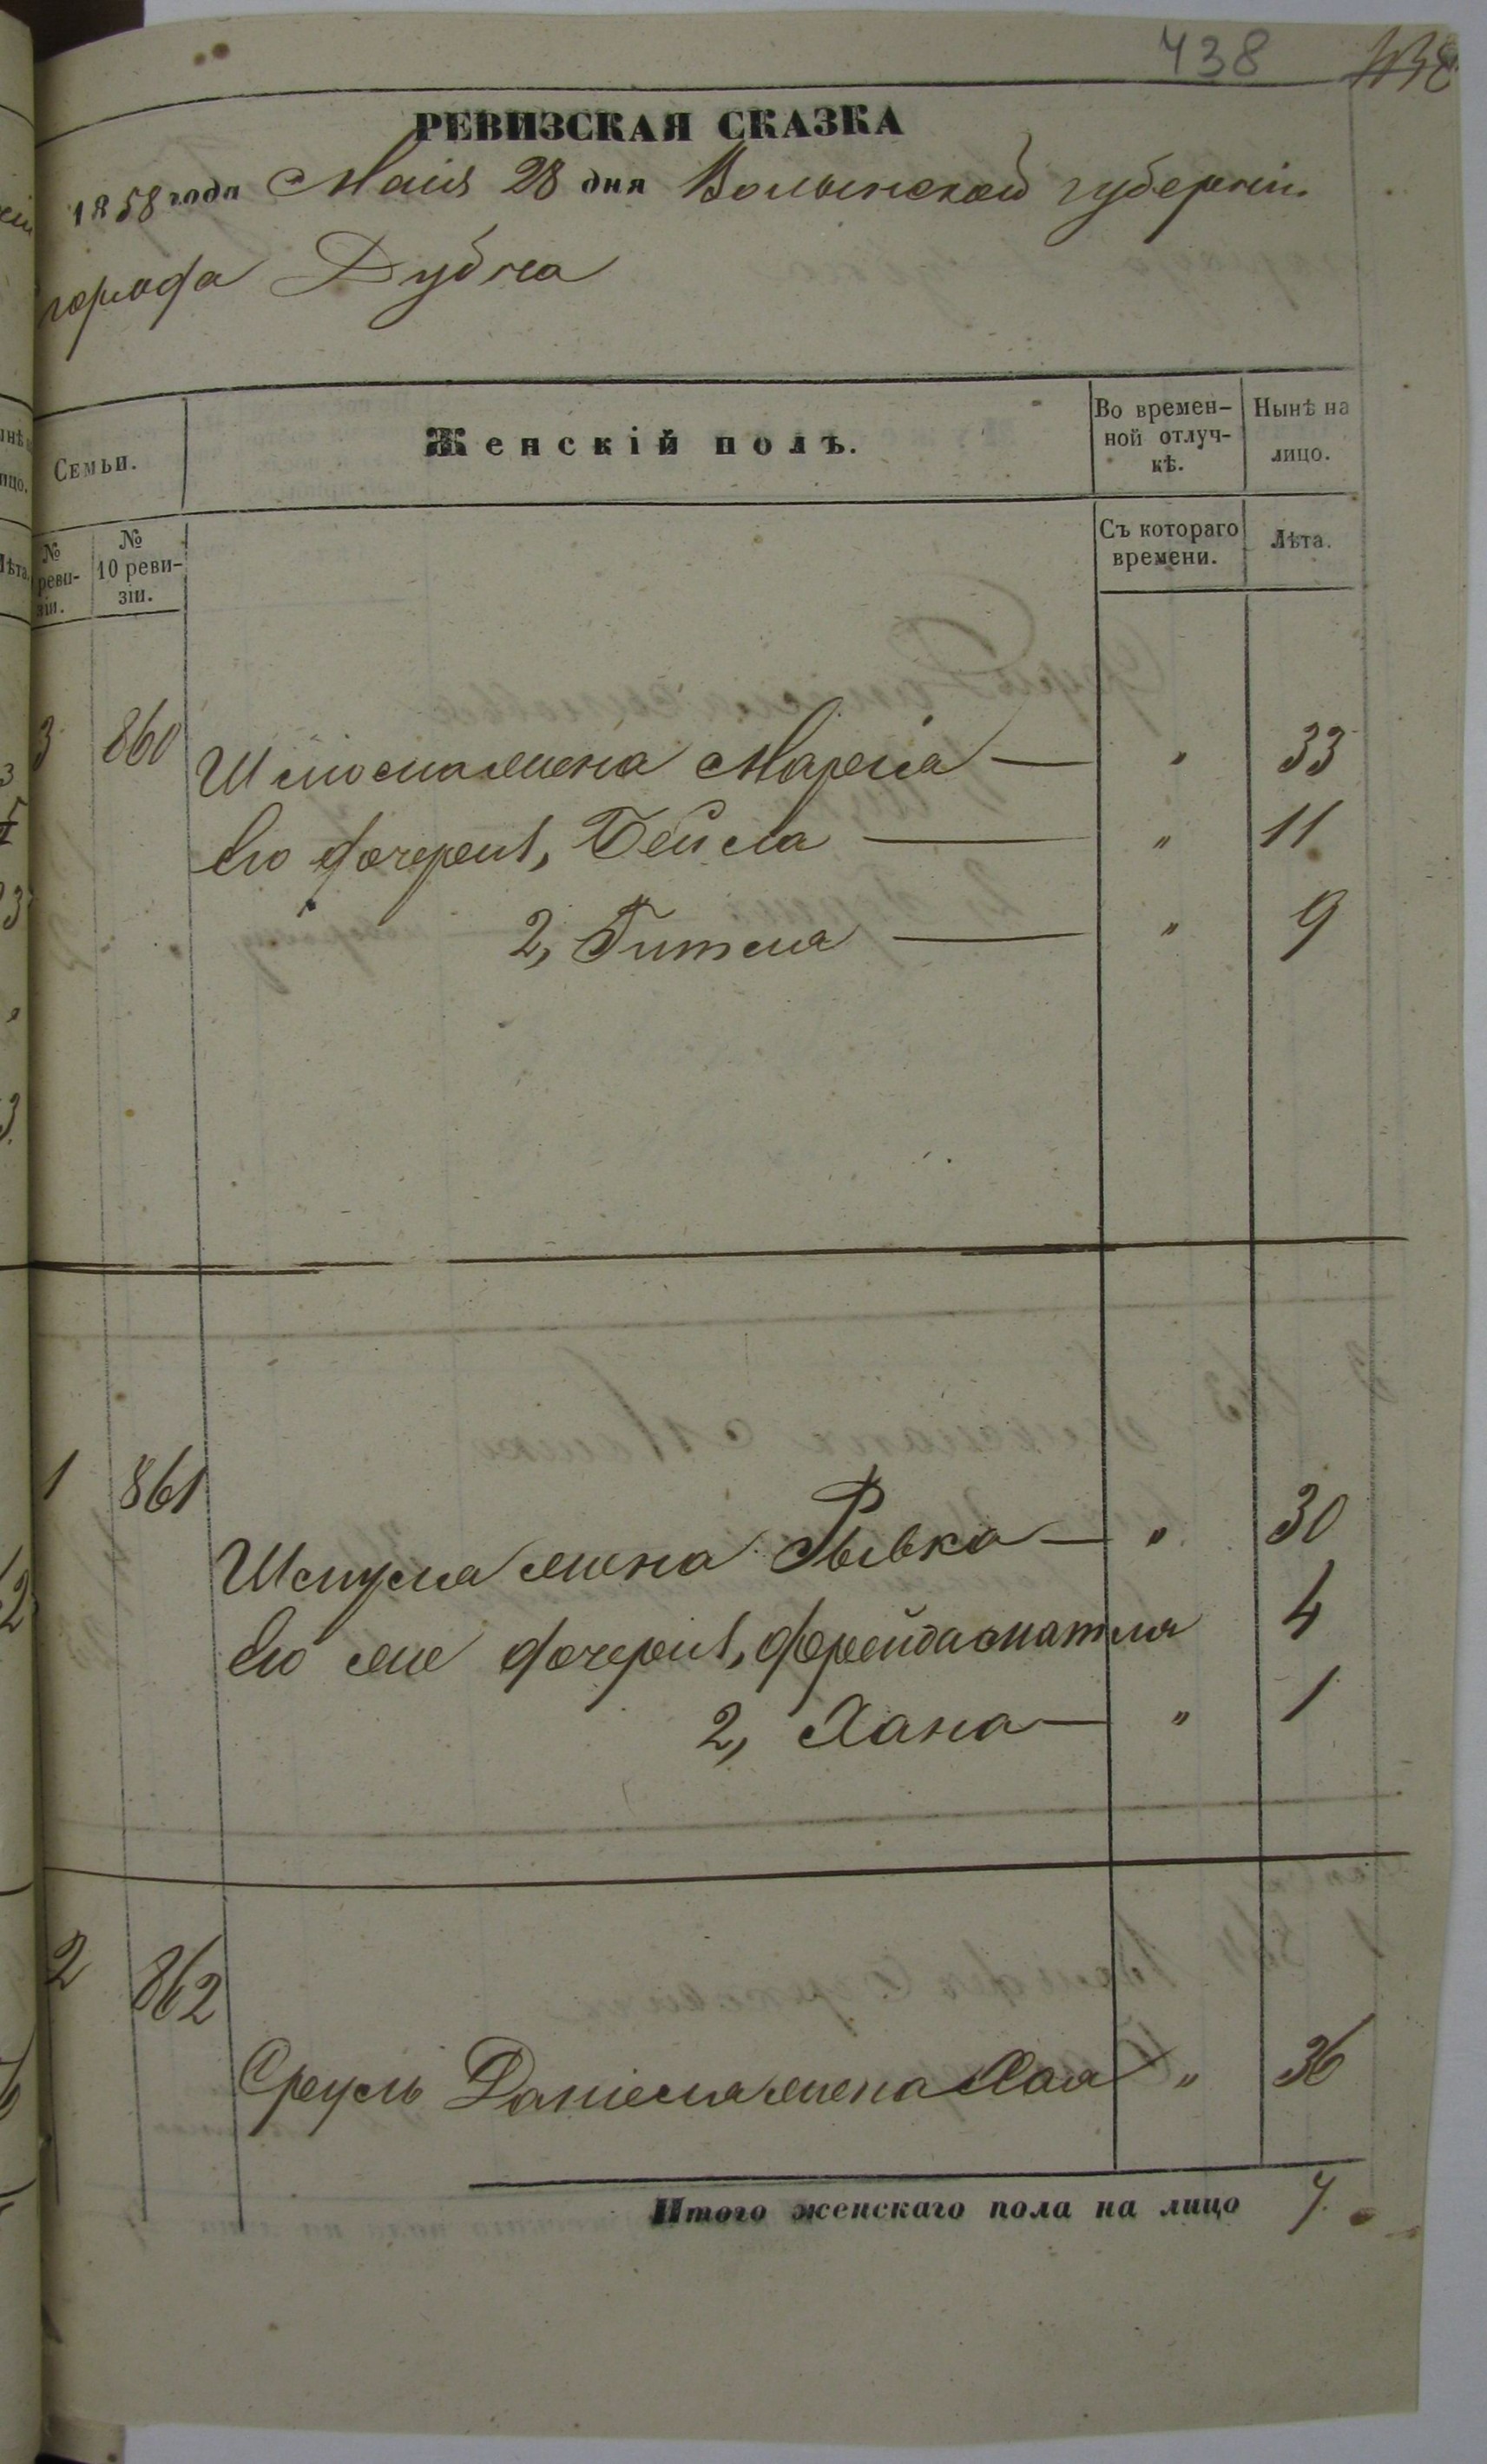 438
РЕВИЗСКАЯ СКАЗКА
1858 года Маія 28 дня Волынской губерніи
города Дубна
Семьи.
Женскій полъ.
Во времен-
ной отлуч-
кѣ.
Нынѣ на
лицо.
№
реви-
зіи.
№
10 реви-
зіи.
Съ котораго
времени.
Лѣта.
3 860
Шлиома жена Маріа — „ 33
Его дочери 1, Бейла — „ 11
2, Гитля — „ 9
1 861
Шмуля жена Рывка — „ 30
Его же дочери 1, Фрейда 4
2, Хана — „ 1
2 862
Сруль Даніеля жена Хая „ 36
Итого женскаго пола на лицо 7